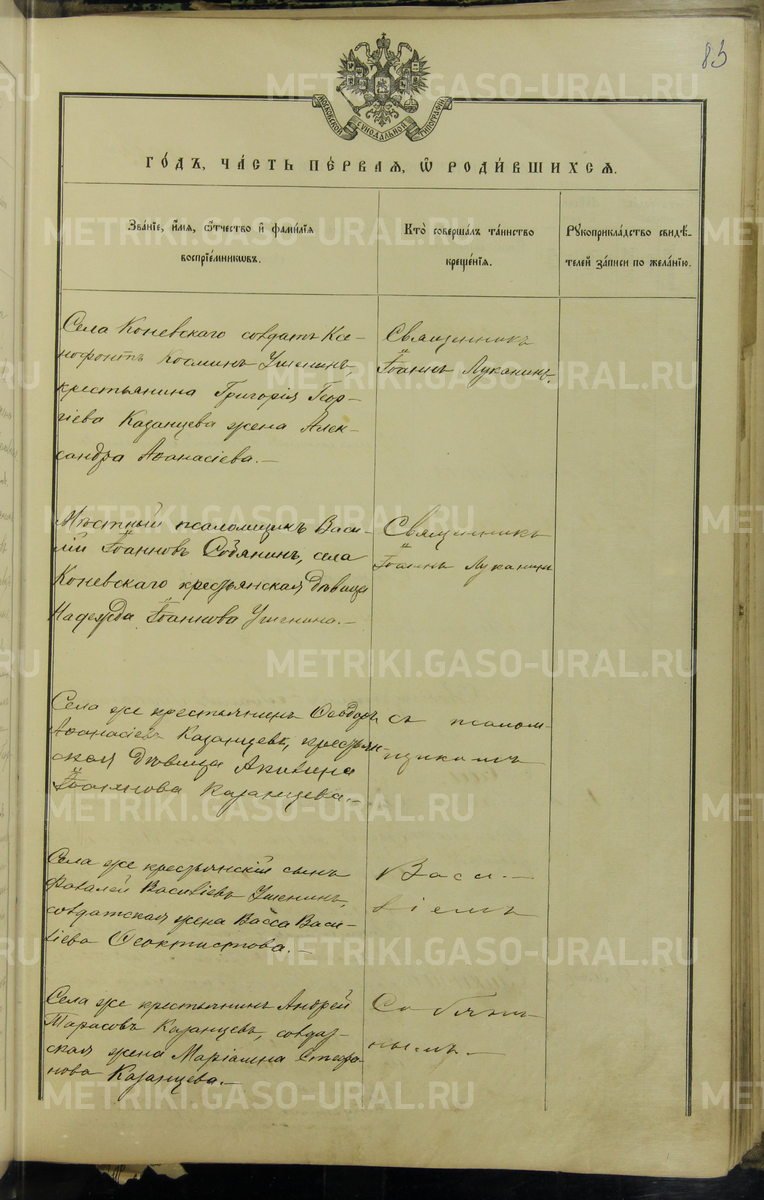 83
МОСКОВСКОЙ СУНОДАЛЬНОЙ ТИПОГРАФІИ
ГО́ДЪ, ЧА́СТЬ ПЕ́РВАЯ, Ѡ҆ РОДИ́ВШИХСЯ.
Зва́нїе, и҆́мя, ѻ҆́тчество и҆ фами́лїя
воспрїе́мникѡвъ.
Кто̀ соверша́лъ та́инство
креще́нїя.
Рꙋкоприкла́дство свидѣ́-
телей за́писи по жела́нїю.
Села Коневскаго солдатъ Ксе-
нофонтъ Косминъ Ушенинъ,
крестьянина Григорія Геор-
гіева Казанцева жена Алек-
сандра Аѳанасіева.—
Священникъ
Іоаннъ Луканинъ.
Мѣстный псаломщикъ Васи-
лій Іоанновъ Собянинъ, села
Коневскаго крестьянская дѣвица
Надежда Іоаннова Ушенина.—
Священникъ
Іоаннъ Луканинъ
Села же крестьянинъ Ѳеодоръ
Аѳанасіевъ Казанцевъ, крестьян-
ская дѣвица Акилина
Іоаннова Казанцева.—
съ псалом-
щикомъ
Села же крестьянскій сынъ
Фалалей Василіевъ Ушенинъ,
солдатская жена Васса Васи-
ліева Ѳеоктистова.—
Васи-
ліемъ
Села же крестьянинъ Андрей
Тарасовъ Казанцевъ, солдат-
ская жена Маріамна Стефа-
нова Казанцева.—
Собяни-
нымъ.—
METRIKI.GASO-URAL.RU